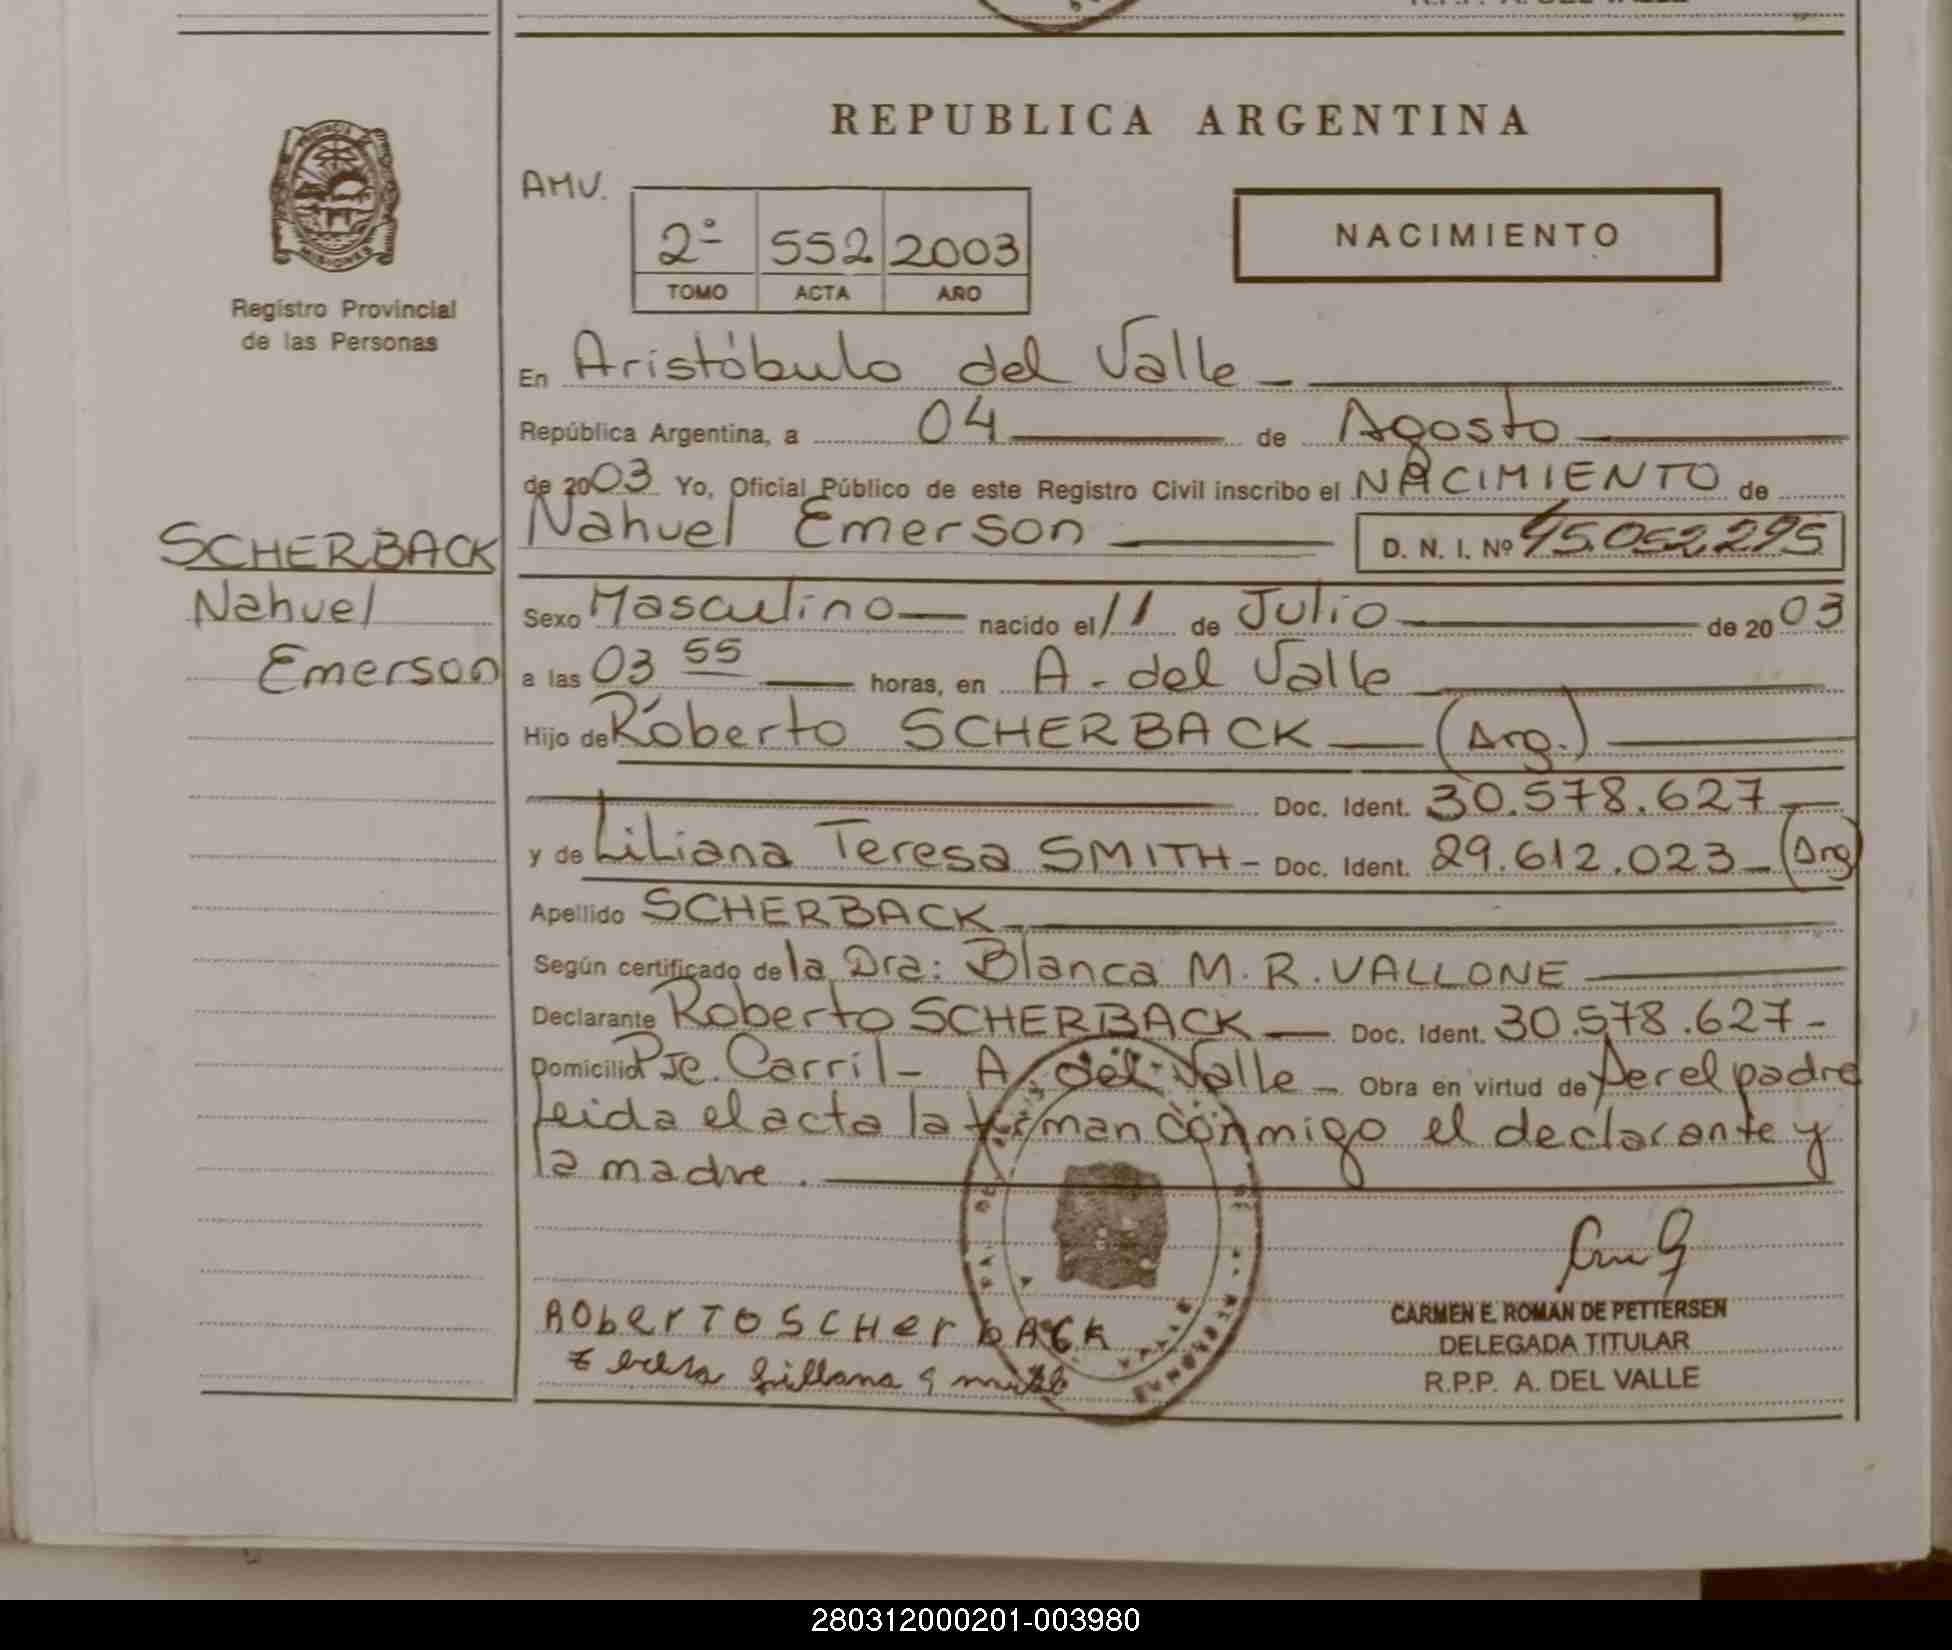 REPUBLICA ARGENTINA
AMV.
2º 552 2003
TOMO ACTA AÑO
NACIMIENTO
Registro Provincial
de las Personas
En Aristóbulo del Valle
República Argentina, a 04 de Agosto
de 2003 Yo, Oficial Público de este Registro Civil inscribo el NACIMIENTO de
Nahuel Emerson D. N. I. Nº 45.052.295
SCHERBACK
Nahuel
Emerson
Sexo Masculino nacido el 11 de Julio de 2003
a las 03 55 horas, en A. del Valle
Hijo de Roberto SCHERBACK (Arg.)
Doc. Ident. 30.578.627
y de Liliana Teresa SMITH - Doc. Ident. 29.612.023 (Arg)
Apellido SCHERBACK
Según certificado de la Dra: Blanca M. R. VALLONE
Declarante Roberto SCHERBACK Doc. Ident. 30.578.627-
Domicilio Pje. Carril - A. del Valle - Obra en virtud de ser el padre
leida el acta la firman conmigo el declarante y
la madre.
RObertO SCHerbACK
CARMEN E. ROMAN DE PETTERSEN
DELEGADA TITULAR
R.P.P. A. DEL VALLE
280312000201-003980